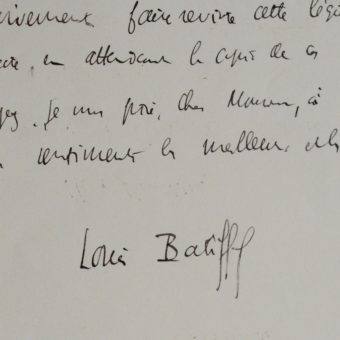 faire revivre cette lég
en attendant la copie de ces
je vous prie, cher Monsieur, à
sentiments les meilleurs
Louis Batiffol